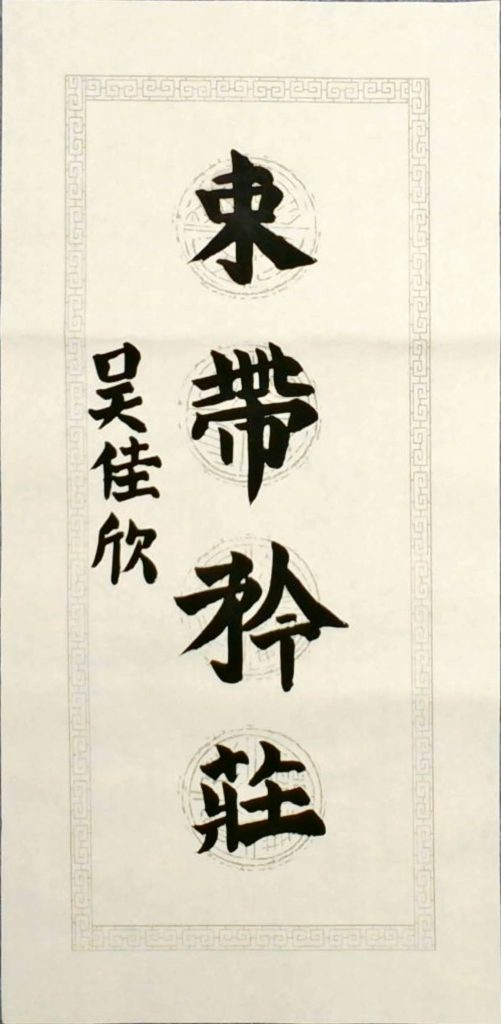 束帶矜莊
吳佳欣